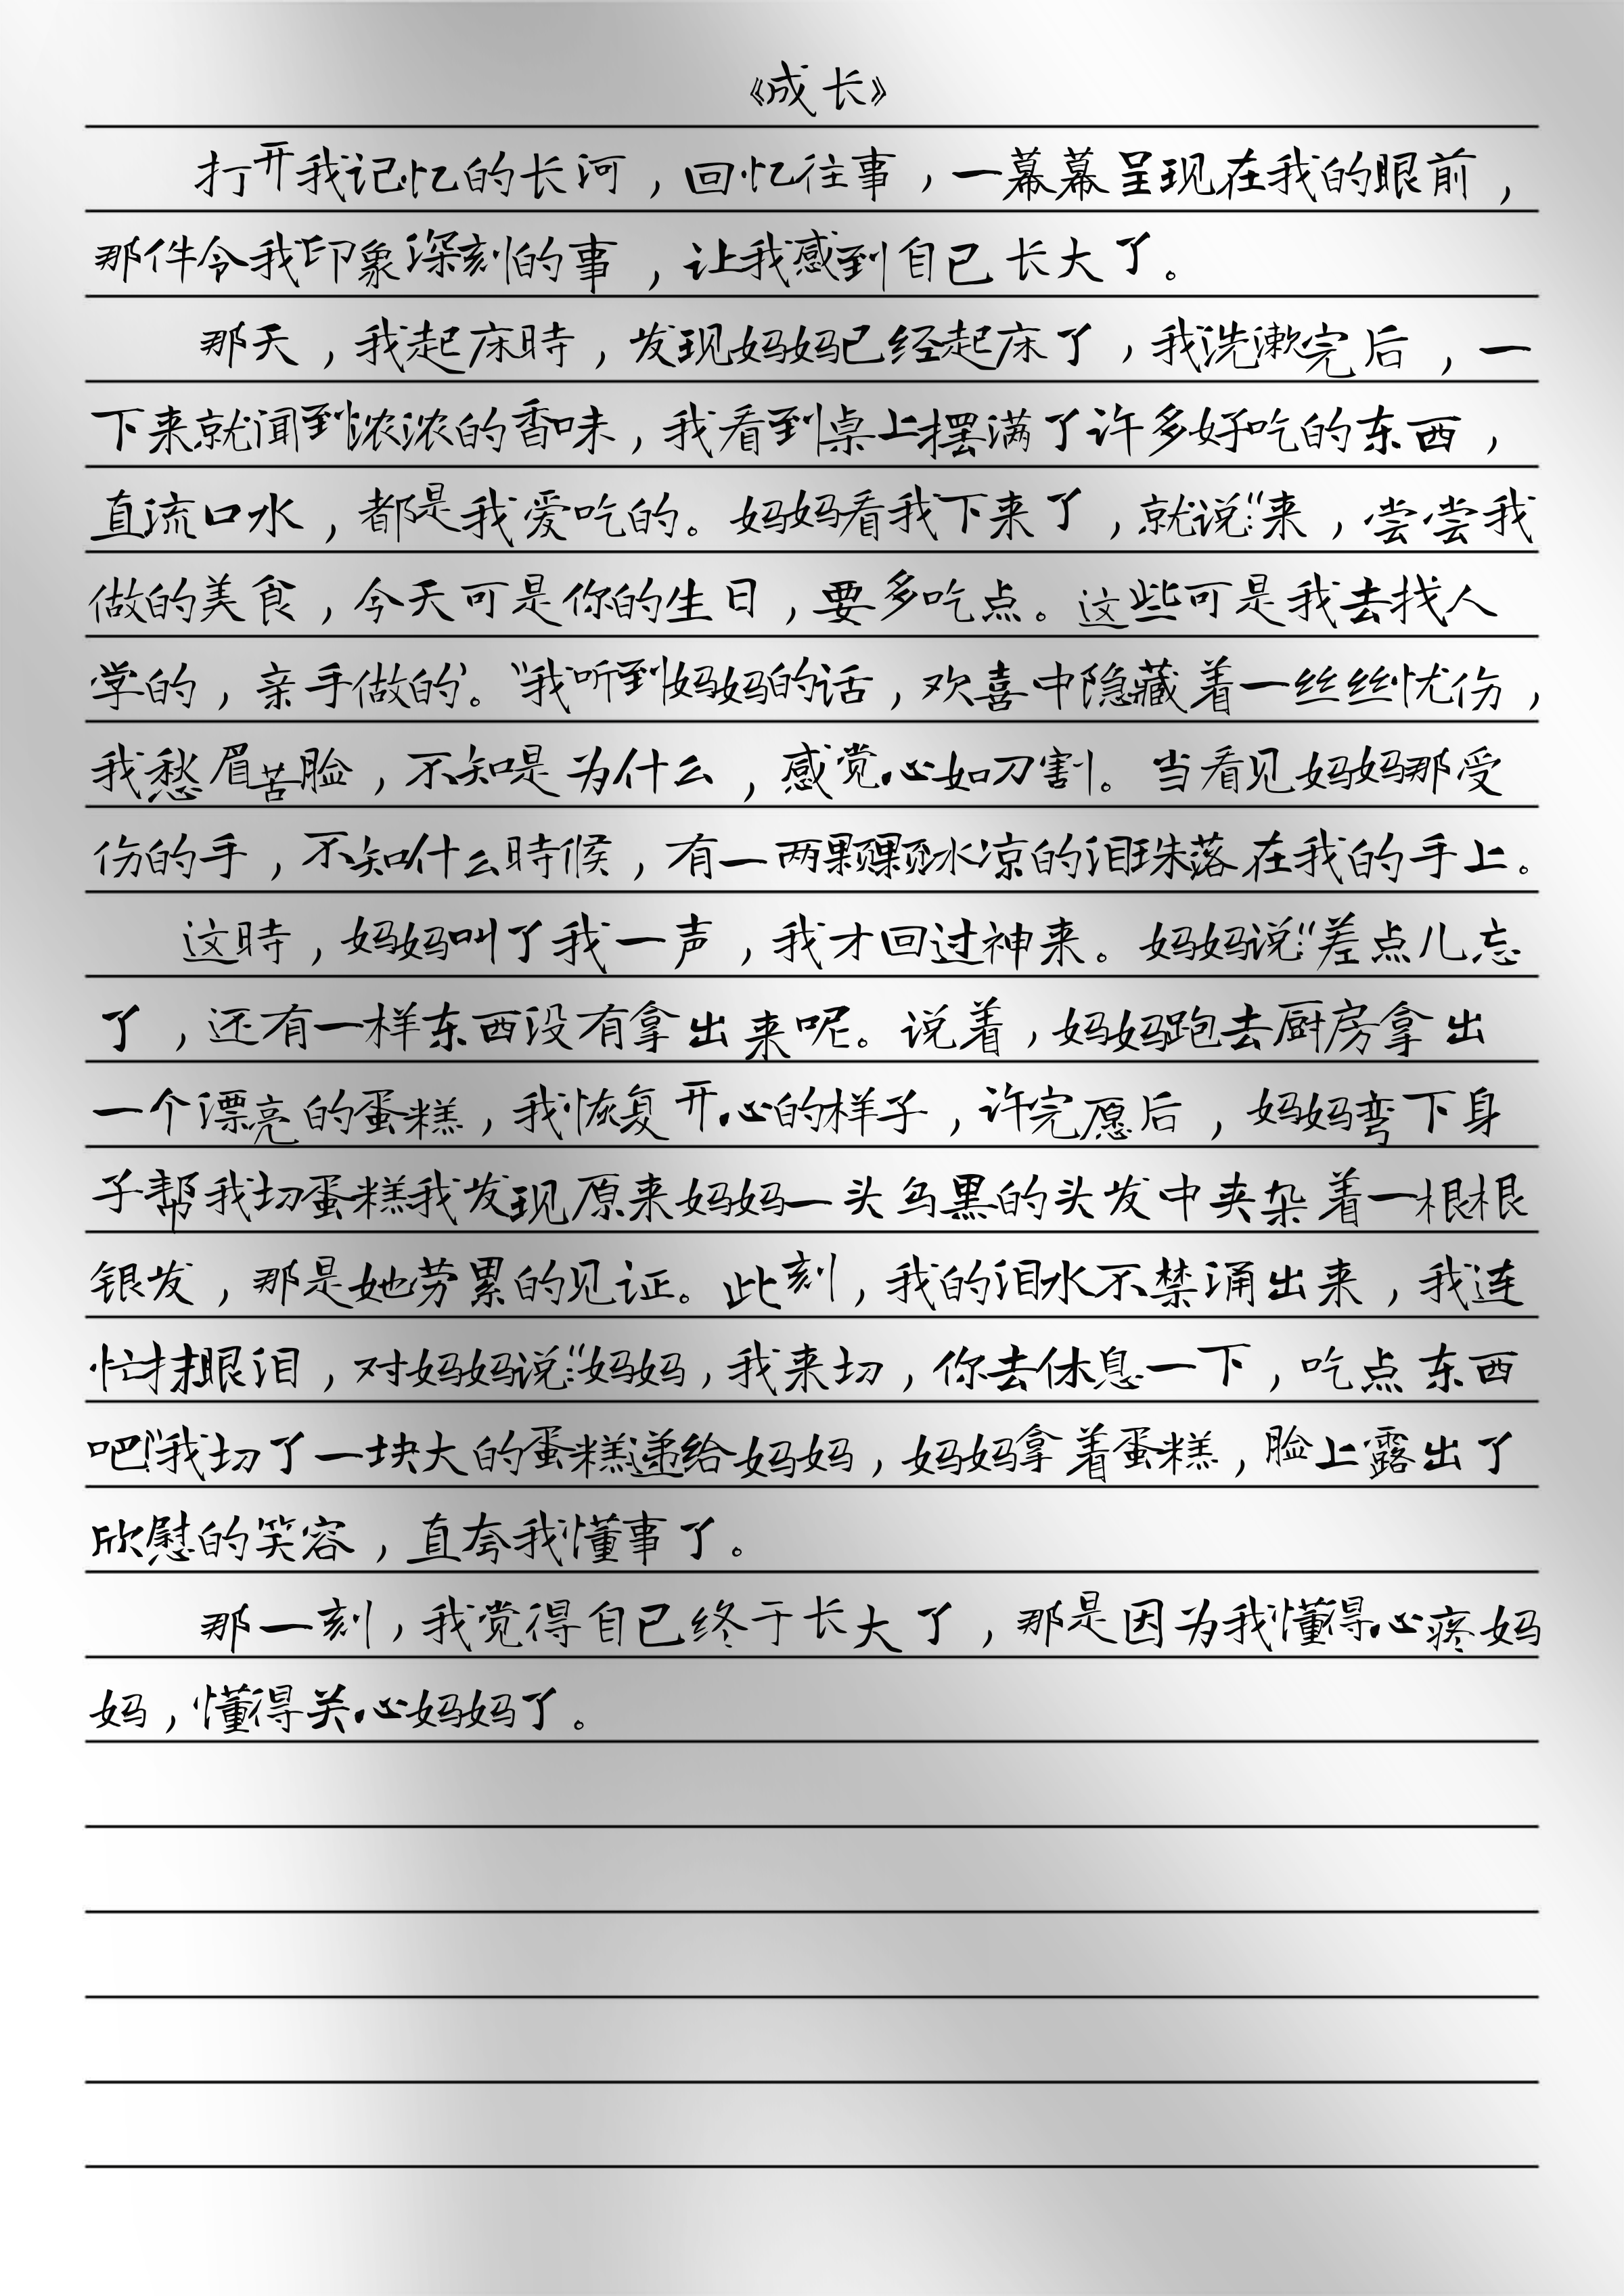 《成长》
打开我记忆的长河，回忆往事，一幕幕呈现在我的眼前，
那件令我印象深刻的事，让我感到自己长大了。
那天，我起床時，发现妈妈已经起床了，我洗漱完后，一
下来就闻到浓浓的香味，我看到桌上摆满了许多好吃的东西，
直流口水，都是我爱吃的。妈妈看我下来了，就说:“来，尝尝我
做的美食，今天可是你的生日，要多吃点。这些可是我去找人
学的，亲手做的'。“我听到妈妈的话，欢喜中隐藏着一丝丝忧伤，
我愁眉苦脸，不知是为什么，感觉心如刀割。当看见妈妈那受
伤的手，不知什么時候，有一两颗颗冰凉的泪珠落在我的手上。
这時，妈妈叫了我一声，我才回过神来。妈妈说:“差点儿忘
了，还有一样东西没有拿出来呢。说着，妈妈跑去厨房拿出
一个漂亮的蛋糕，我恢复开心的样子，许完愿后，妈妈弯下身
子帮我切蛋糕我发现原来妈妈一头乌黑的头发中夹杂着一根根
银发，那是她劳累的见证。此刻，我的泪水不禁涌出来，我连
忙抹眼泪，对妈妈说:“妈妈，我来切，你去休息一下，吃点东西
吧!“我切了一块大的蛋糕递给妈妈，妈妈拿着蛋糕，脸上露出了
欣慰的笑容，直夸我懂事了。
那一刻，我觉得自己终于长大了，那是因为我懂得心疼妈
妈，懂得关心妈妈了。